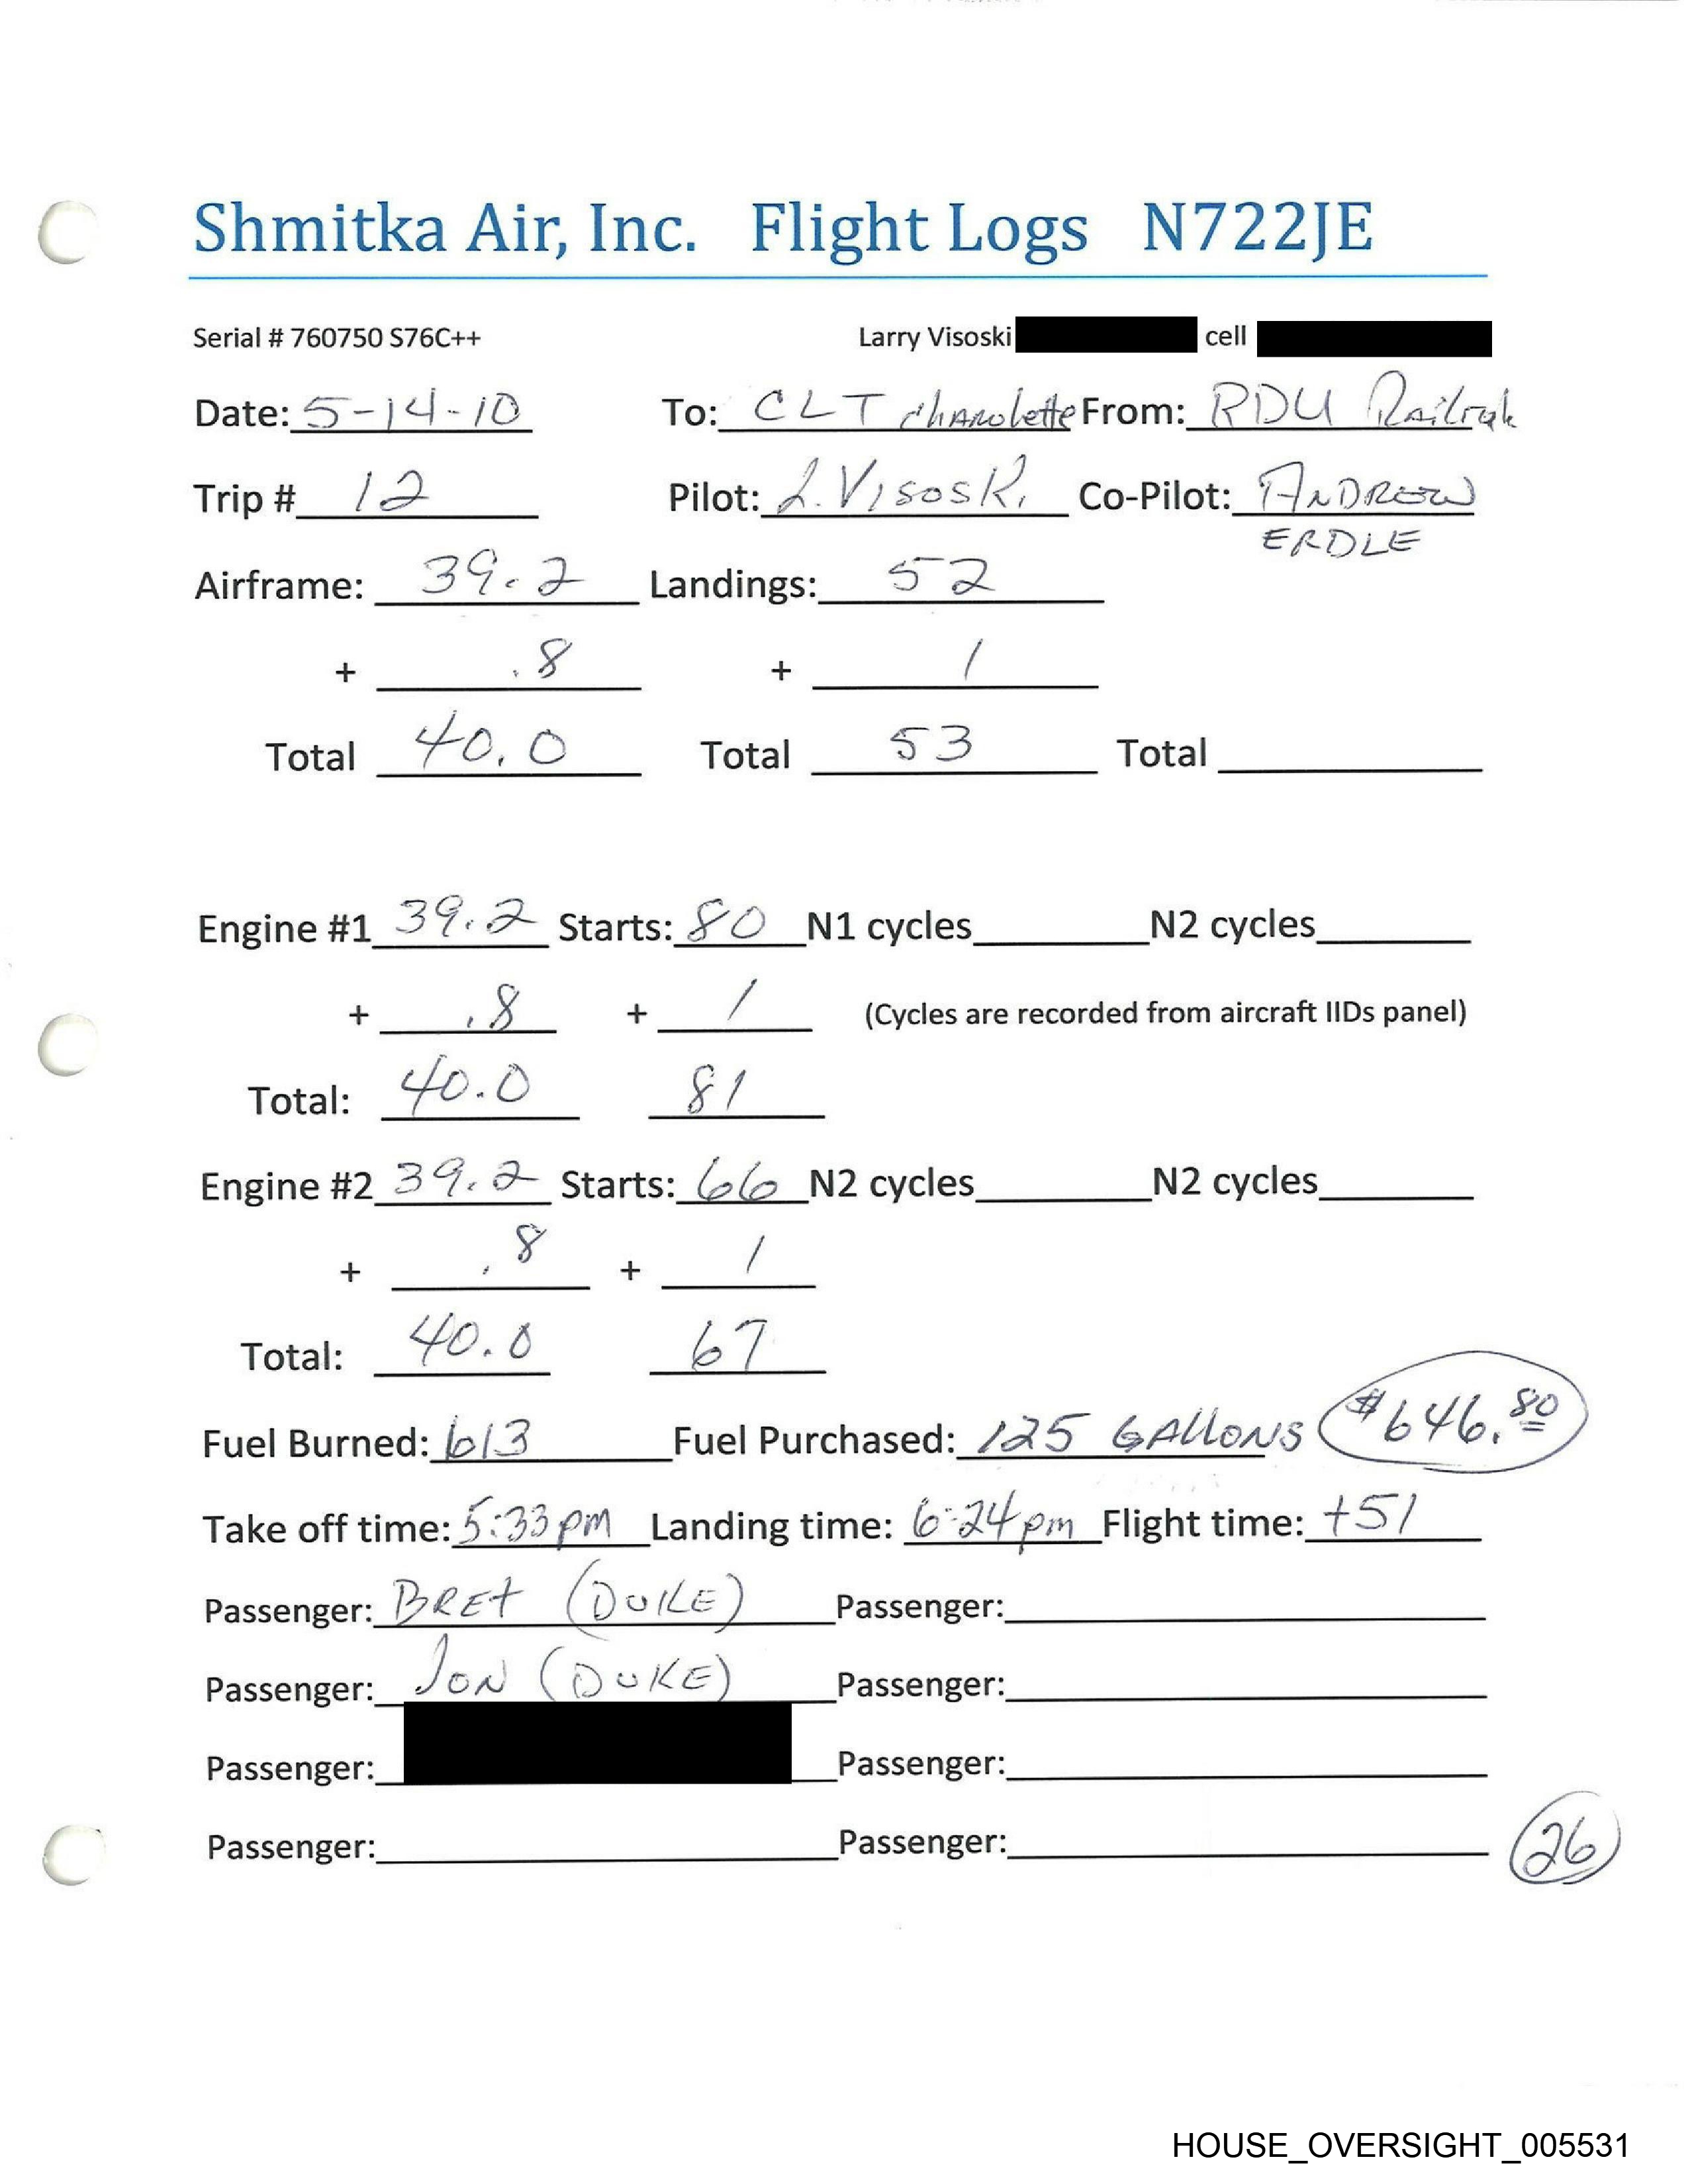 Shmitka Air, Inc. Flight Logs N722JE
Serial # 760750 S76C++ Larry Visoski cell
Date: 5-14-10 To: CLT Charolette From: RDU
Trip # 12 Pilot: L. Visoski Co-Pilot: ANDREW
ERDLE
Airframe: 39.2 Landings: 52
+ .8 + 1
Total 40.0 Total 53 Total
Engine #1 39.2 Starts: 80 N1 cycles N2 cycles
+ .8 + 1 (Cycles are recorded from aircraft IIDs panel)
Total: 40.0 81
Engine #2 39.2 Starts: 66 N2 cycles N2 cycles
+ .8 + 1
Total: 40.0 67
Fuel Burned: 613 Fuel Purchased: 125 GALLONS $646.80
Take off time: 5:33pm Landing time: 6:24pm Flight time: +51
Passenger: BREt (DUKE) Passenger:
Passenger: JON (DUKE) Passenger:
Passenger: Passenger:
Passenger: Passenger: 26
HOUSE_OVERSIGHT_005531